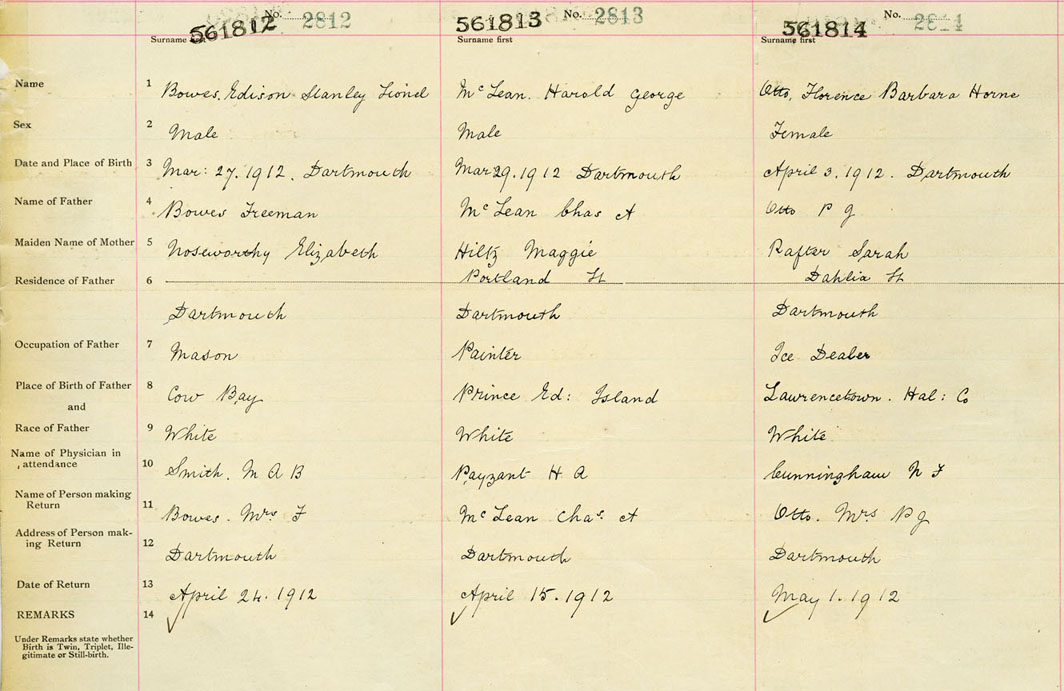 No. 2812 No. 2813 No. 2814
561812 561813 561814
Surname first Surname first Surname first
Name 1 Bowes, Edison Stanley Lionel McLean. Harold George Otto, Florence Barbara Horne
Sex 2 Male Male Female
Date and Place of Birth 3 Mar: 27. 1912. Dartmouth Mar 29. 1912 Dartmouth April 3. 1912. Dartmouth
Name of Father 4 Bowes Freeman McLean Chas A Otto P G
Maiden Name of Mother 5 Noseworthy Elizabeth Hiltz Maggie Rafter Sarah
Residence of Father 6 Portland St Dahlia St
Dartmouth Dartmouth Dartmouth
Occupation of Father 7 Mason Painter Ice Dealer
Place of Birth of Father 8 Cow Bay Prince Ed: Island Lawrencetown. Hal: Co
and
Race of Father 9 White White White
Name of Physician in
attendance 10 Smith. M A B Payzant H A Cunningham N F
Name of Person making
Return 11 Bowes. Mrs F McLean Chas. A Otto. Mrs P G
Address of Person mak-
ing Return 12 Dartmouth Dartmouth Dartmouth
Date of Return 13 April 24. 1912 April 15. 1912 May 1. 1912
REMARKS 14
Under Remarks state whether
Birth is Twin, Triplet, Ille-
gitimate or Still-birth.